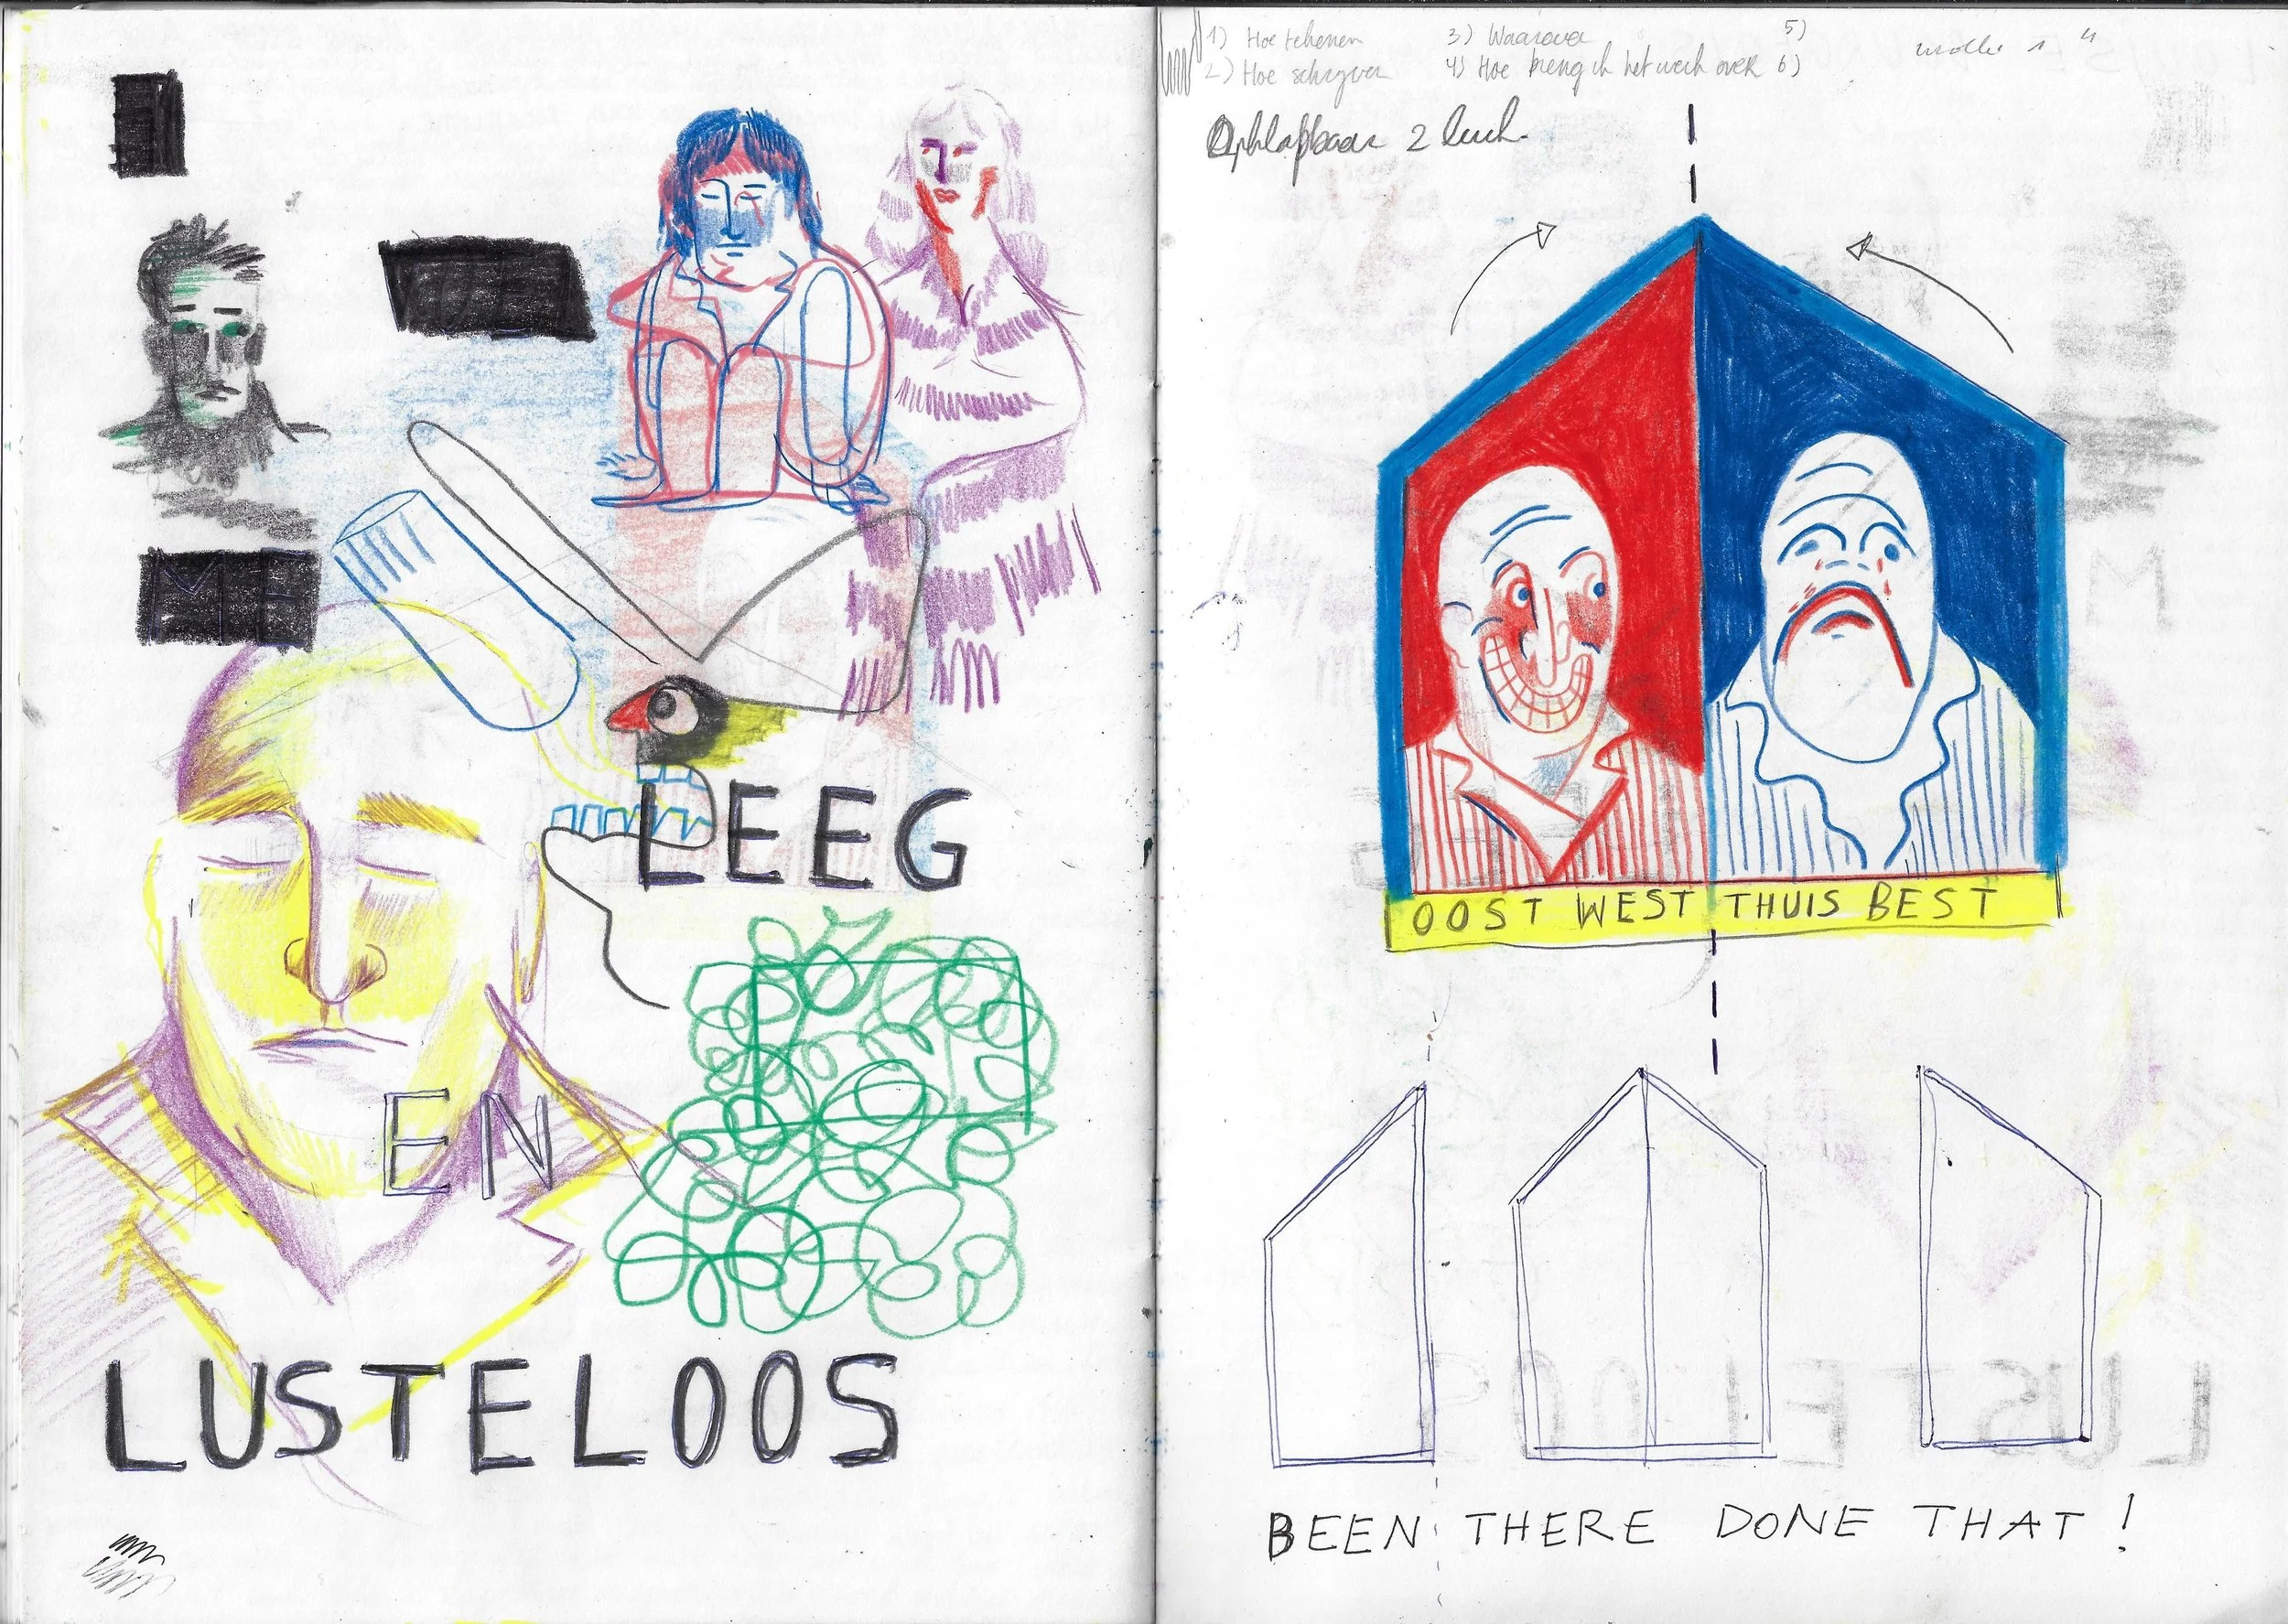 ME
LEEG
EN
LUSTELOOS
1) Hoe tekenen
2) Hoe schryven
3) Waarover
4) Hoe breng ik het werk over
5)
6)
Opklapbaar 2 luik.
OOST WEST THUIS BEST
BEEN THERE DONE THAT!